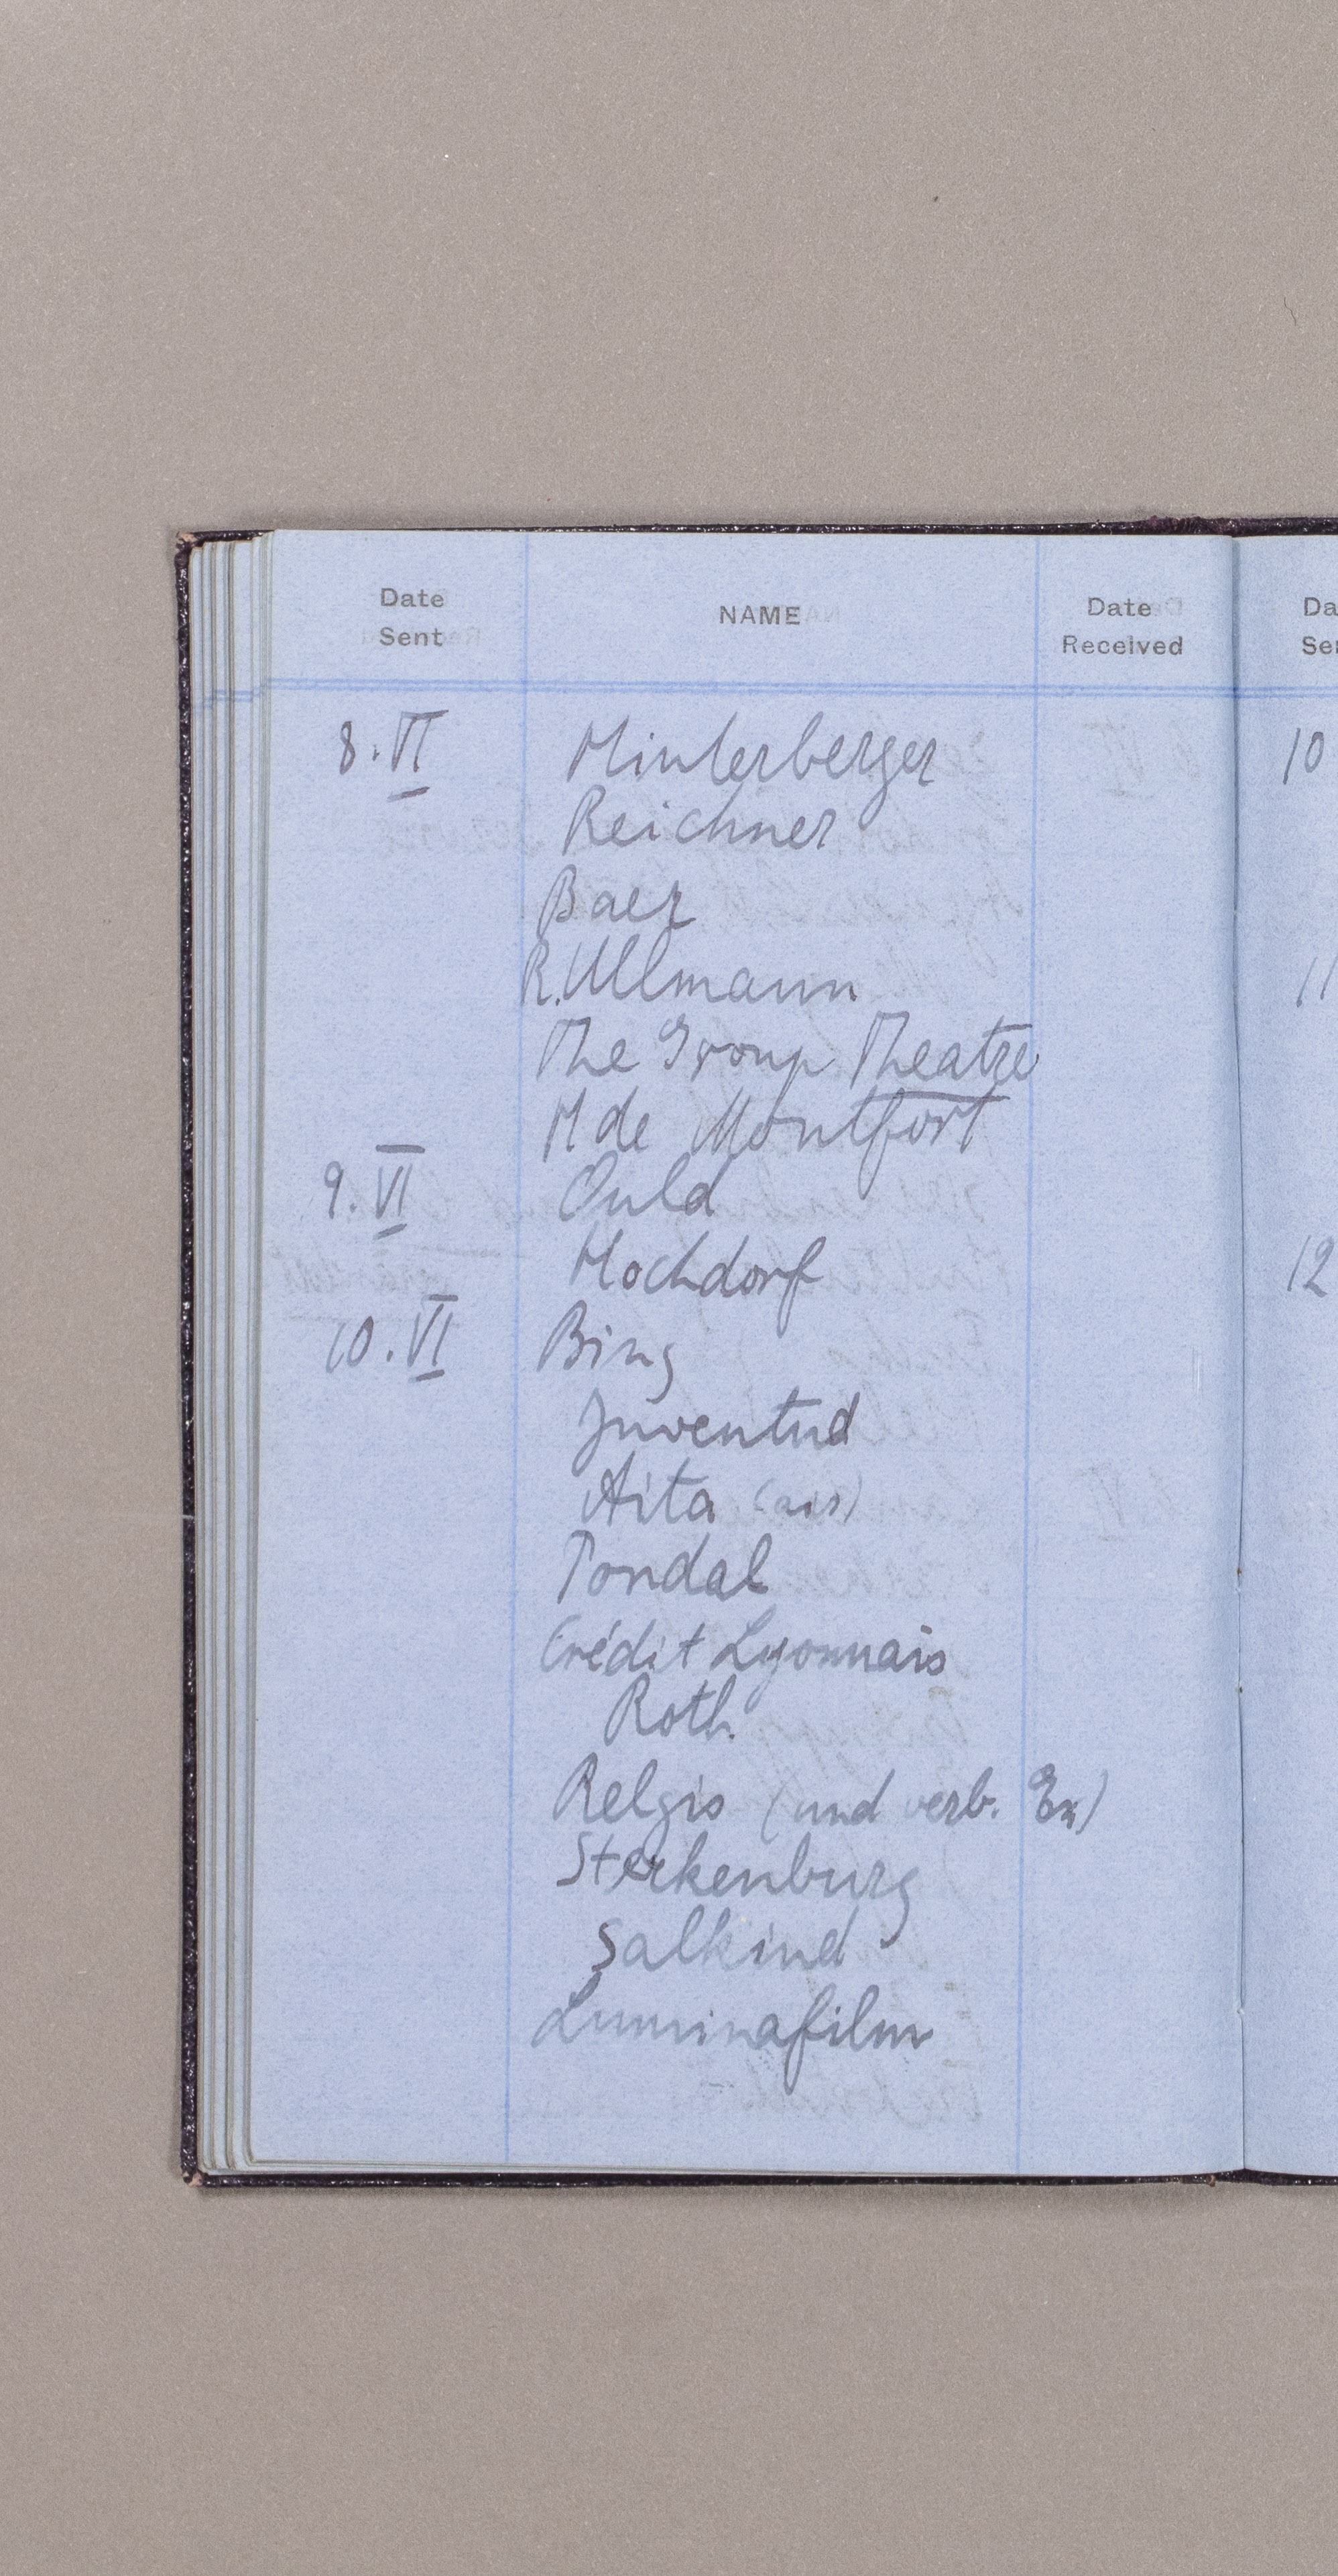 Date Sent NAME Date Received
8.VI Hinterberger
Reichner
Baer
R. Ullmann
The Group Theatre
H de Montfort
9.VI Ould
Hochdorf
10.VI Bing
Juventud
Aita (air)
Tondal
Crédit Lyonnais
Roth
Relgis (und verb. Ex)
Sterkenburg
Salkind
Luminafilm
Da
Se
10
11
12